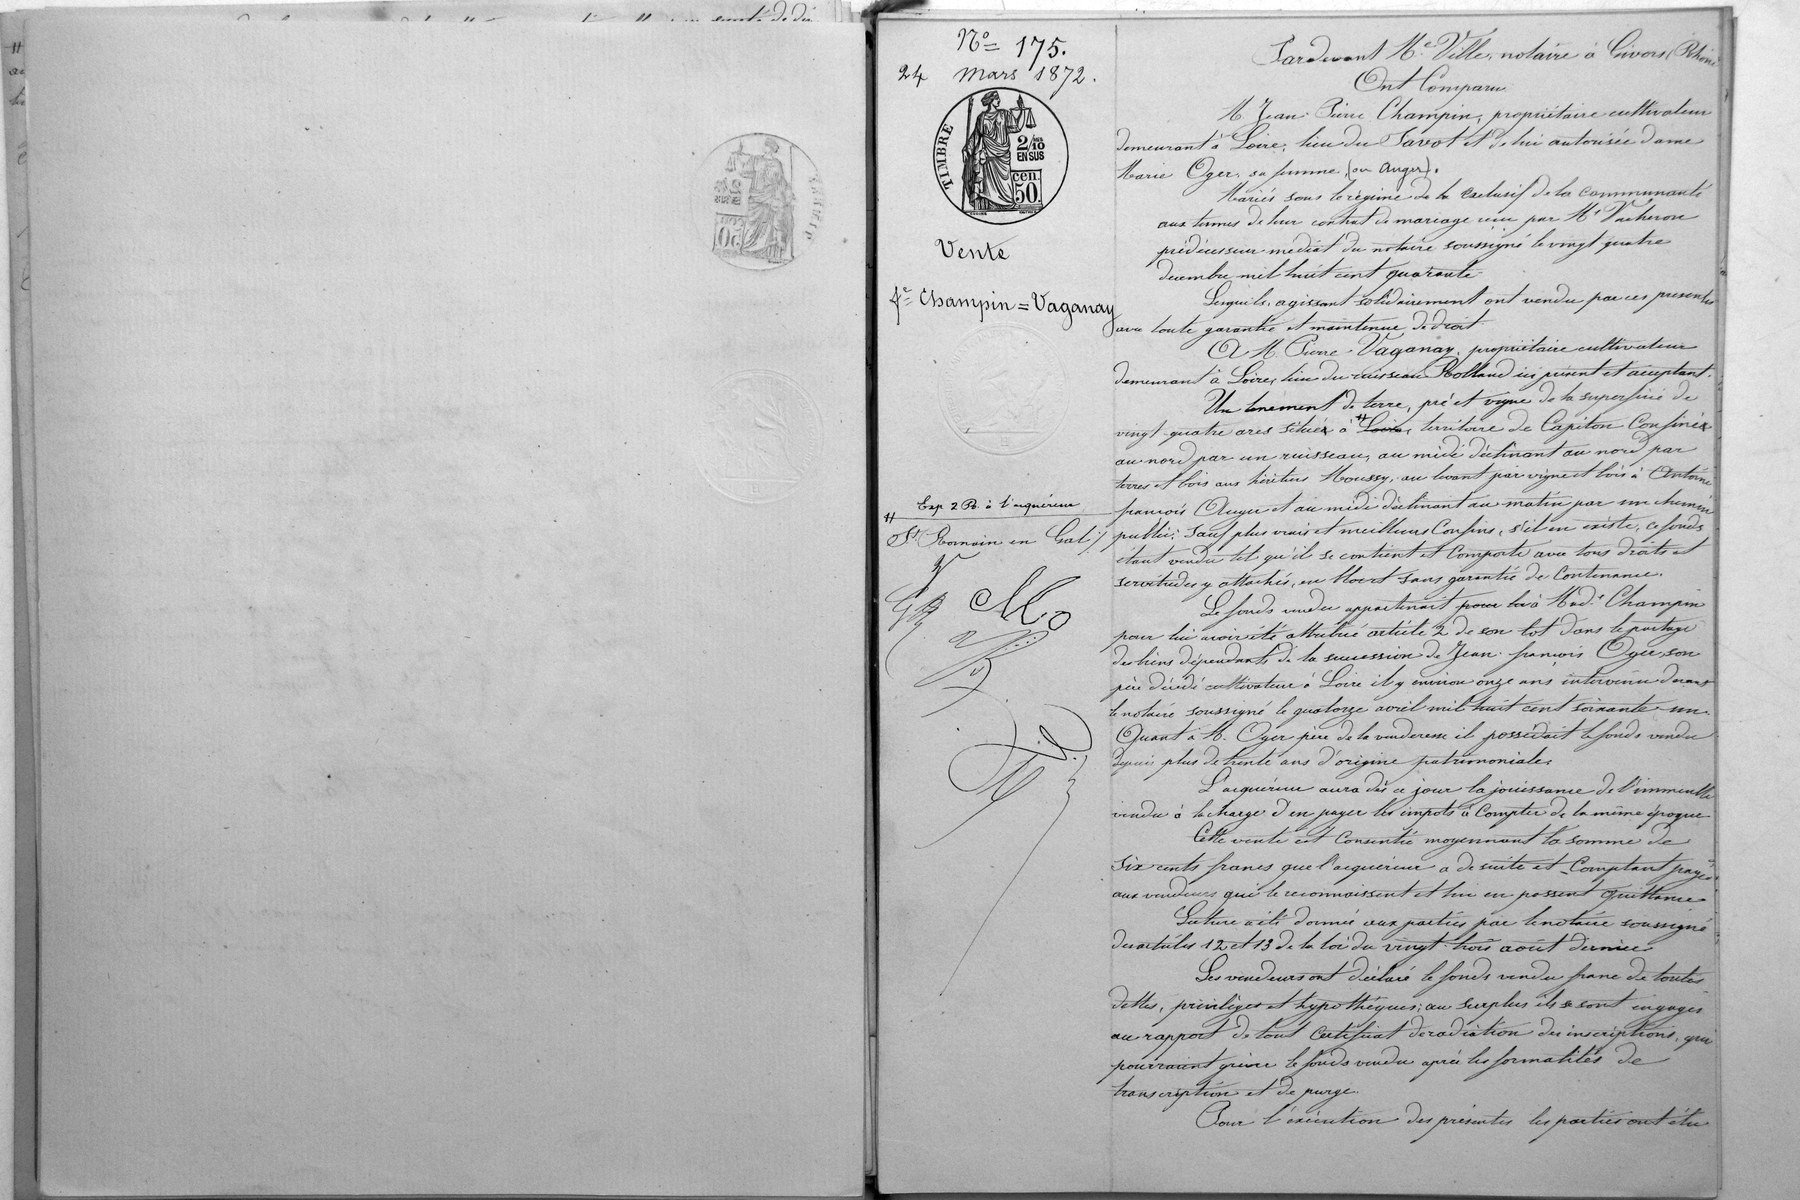 N° 175.
24 mars 1872.
TIMBRE
2/10
EN SUS
cen.
50.
Vente
Champin = Vaganay
Exp 2 R. à l'acquéreur
St Romain en Gal
Pardevant Me Ville, notaire à Givors (Rhône
Ont Comparu
M Jean Pierre Champin, propriétaire cultivateur
demeurant à Loire, lieu du et de lui autorisée dame
Marie Oger, sa femme, (ou Auger).
Mariés sous le régime de la exclusif de la communauté
aux termes de leur contrat de mariage reçu par Me Vacheron
prédécesseur médiat du notaire soussigné le vingt quatre
decembre mil huit cent quarante.
Lesquels, agissant solidairement ont vendu par ces presentes
avec toute garantie et maintenue de droit
A M. Pierre Vaganay, propriétaire cultivateur
demeurant à Loire, lieu du ruisseau Rolland ici présent et acceptant.
Un tenement de terre, pré et vigne de la superficie de
vingt quatre ares situé à Loire, territoire de Capiton Confiné
au nord par un ruisseau, au midi déclinant au nord par
terres et bois aux héritiers Moussy, au levant par vigne et bois à Antoine
françois Auger et au midi déclinant au matin par un chemin
public; sauf plus vrais et meilleurs Confins, s'il en existe, ce fonds
étant vendu tel qu'il se contient et Comporte avec tous droits et
servitudes y attachés, en bloc et sans garantie de Contenance.
Le fonds vendu appartenait pour à Made Champin
pour lui avoir été attribué article 2 de son lot dans le partage
des biens dépendants de la succession de Jean françois Oger, son
père décédé cultivateur à Loire il y environ onze ans intervenu devant
le notaire soussigné le quatorze avril mil huit cent soixante-un.
Quant à M. Oger père de la venderesse il possédait le fonds vendu
depuis plus de trente ans d'origine patrimoniale.
L'acquéreur aura dès ce jour la jouissance de l'immeuble
vendu à la charge d'en payer les impots à Compter de la même époque
Cette vente est Consentie moyennant la somme de
six cents francs que l'acquéreur a de suite et Comptant payée
aux vendeurs qui le reconnaissent et lui en passent quittance
Lecture a été donnée aux parties par le notaire soussigné
des articles 12 et 13 de la loi du vingt-trois août dernier
Les vendeurs ont déclaré le fonds vendu franc de toutes
dettes, privilèges et hypothèques; au surplus ils se sont engagés
au rapport de tout Certificat de radiation des inscriptions, qui
pourraient grever le fonds vendu après les formalités de
transcription et de purge.
Pour l'exécution des présentes les parties ont élu